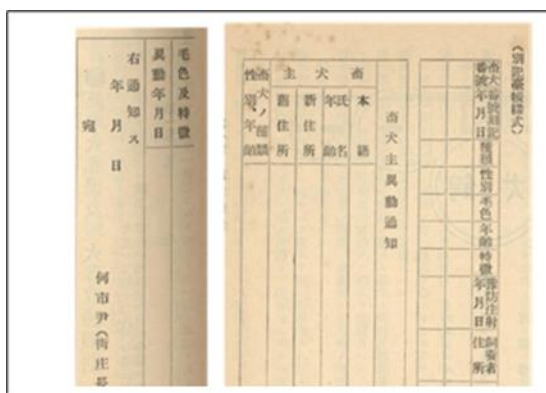 (別記臺帳樣式)
番號
年月日
種類
性別
毛色
年齡
特徵
豫防注射
年月日
飼養者
住所
畜犬主異動通知
畜犬主
本籍
氏名
年齡
新住所
舊住所
畜犬ノ種類
性別、年齡
毛色及特徵
異動年月日
右通知ス
年月日
何市尹(街庄長
宛